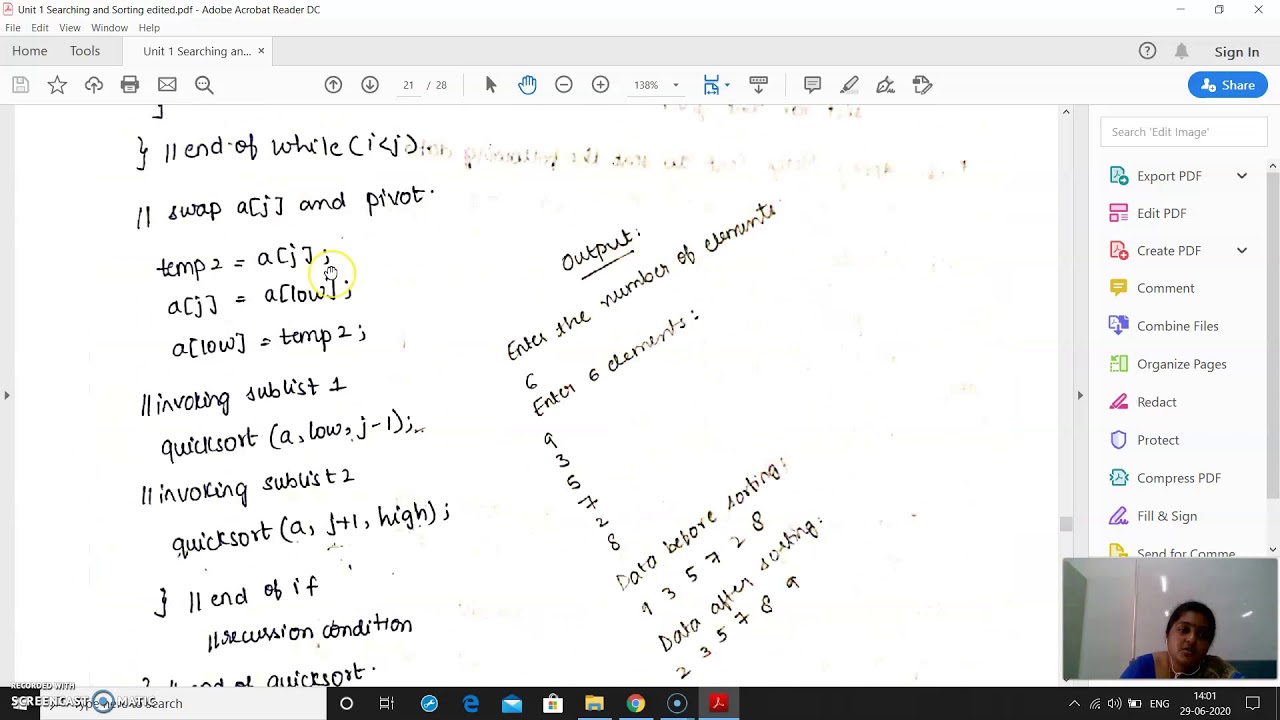 Unit 1 Searching and Sorting edited.pdf - Adobe Acrobat Reader DC
File Edit View Window Help
Home Tools Unit 1 Searching an... × Sign In
21 / 28 138% Share
} // end of while (i<j).
// swap a[j] and pivot.
temp2 = a[j];
a[j] = a[low];
a[low] = temp2;
// invoking sublist 1
quicksort (a, low, j-1);
// invoking sublist 2
quicksort (a, j+1, high);
} // end of if
// recussion condition
} // end of quicksort.
Output:
Enter the number of elements.
6
Enter 6 elements:
9
3
5
7
2
8
Data before sorting:
9 3 5 7 2 8
Data after sorting:
2 3 5 7 8 9
Search 'Edit Image'
Export PDF
Edit PDF
Create PDF
Comment
Combine Files
Organize Pages
Redact
Protect
Compress PDF
Fill & Sign
Send for Comme...
RECORDED WITH
SCREENCAST MATIC
here to search
ENG
14:01
29-06-2020